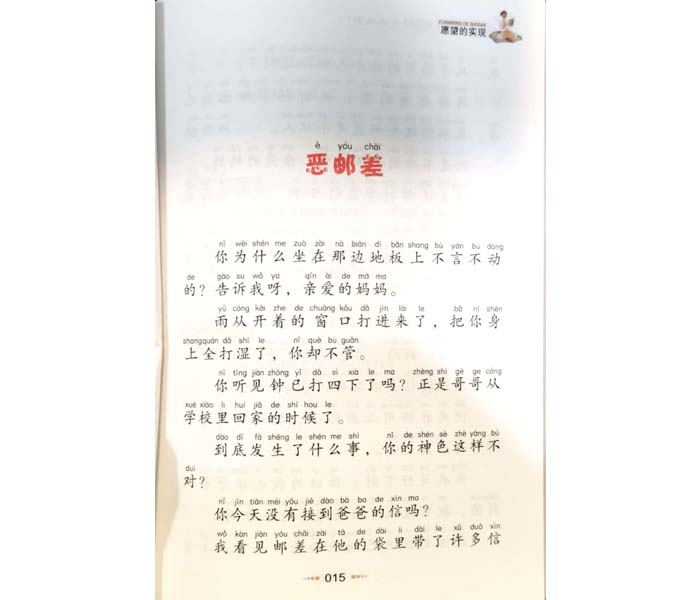 YUANWANG DE SHIXIAN
愿望的实现
è yóu chāi
恶邮差
nǐ wèi shén me zuò zài nà biān dì bǎn shang bù yán bú dòng
你为什么坐在那边地板上不言不动
de gào su wǒ ya qīn ài de mā ma
的？告诉我呀，亲爱的妈妈。
yǔ cóng kāi zhe de chuāng kǒu dǎ jìn lái le bǎ nǐ shēn
雨从开着的窗口打进来了，把你身
shangquán dǎ shī le nǐ què bù guǎn
上全打湿了，你却不管。
nǐ tīng jiàn zhōng yǐ dǎ sì xià le ma zhèng shì gē ge cóng
你听见钟已打四下了吗？正是哥哥从
xué xiào li huí jiā de shí hou le
学校里回家的时候了。
dào dǐ fā shēng le shén me shì nǐ de shén sè zhè yàng bú
到底发生了什么事，你的神色这样不
duì
对？
nǐ jīn tiān méi yǒu jiē dào bà ba de xìn ma
你今天没有接到爸爸的信吗？
wǒ kàn jiàn yóu chāi zài tā de dài li dài le xǔ duō xìn
我看见邮差在他的袋里带了许多信
015